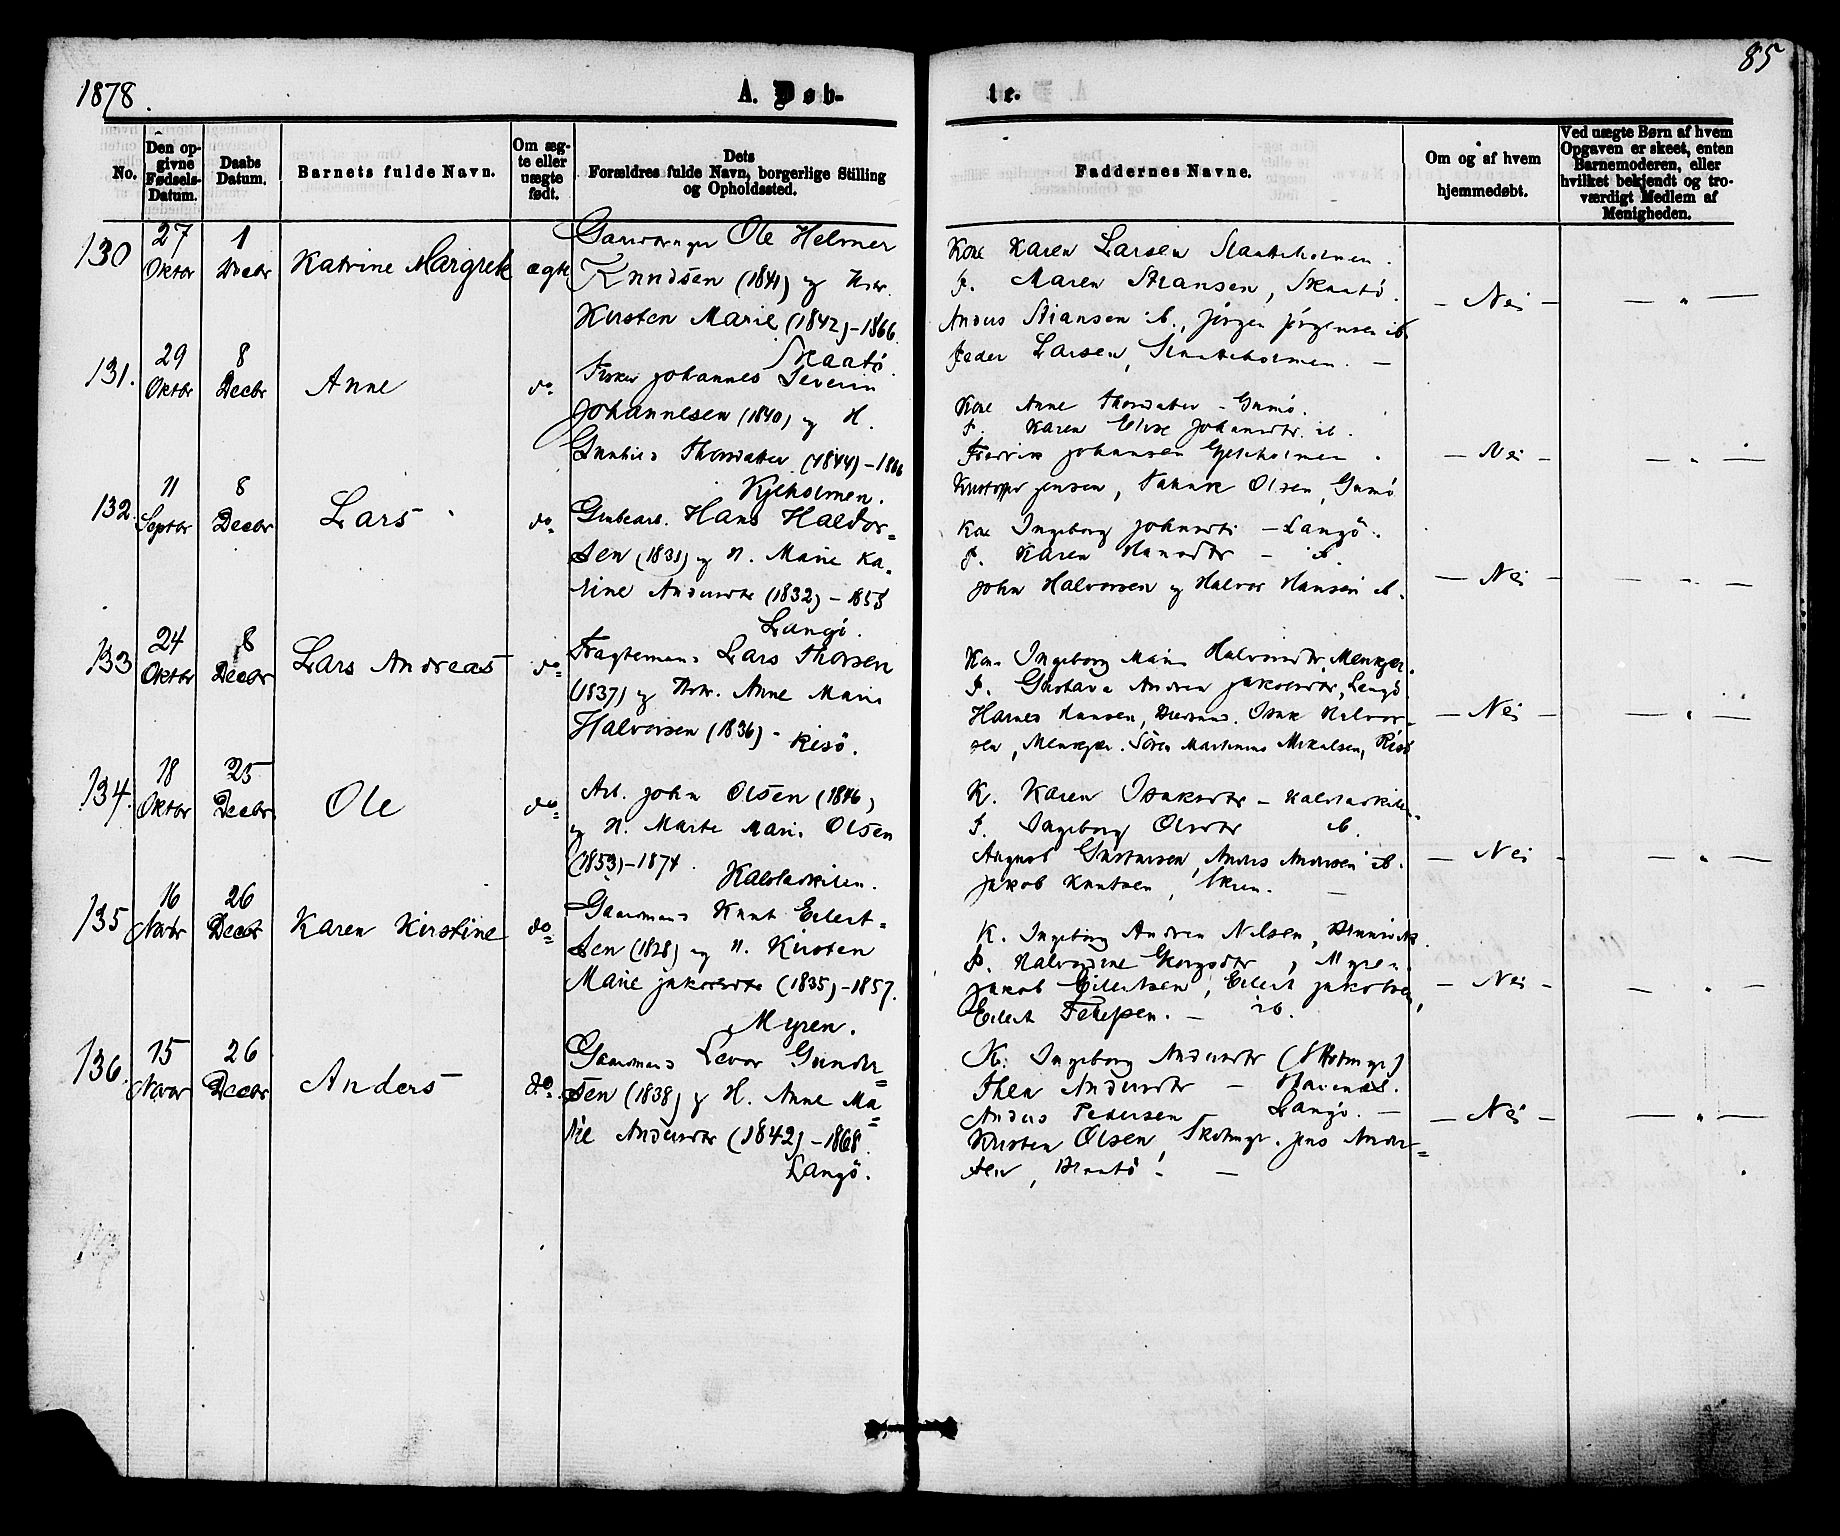 1878.
85
A. Døb-
te.
No.
Den op-
givne
Fødsels-
Datum.
Daabs
Datum.
Barnets fulde Navn.
Om æg-
te eller
uægte
født.
Dets
Forældres fulde Navn, borgerlige Stilling
og Opholdssted.
Faddernes Navne.
Om og af hvem
hjemmedøbt.
Ved uægte Børn af hvem
Opgaven er skeet, enten
Barnemoderen, eller
hvilket bekjendt og tro-
værdigt Medlem af
Menigheden.
130
27
Oktbr
1
Decbr
Katrine Margrete
ægte
Ole Helmer
Knudsen (1841) og Hstr.
Kirsten Marie (1842) - 1866.
Skaatö.
Kone Karen Larsen
P. Maren Stiansen, Skaatö.
Anders Stiansen ib., Jörgen Jörgensen ib.
Peder Larsen, —
— Nei —
— " —
131.
29
Oktbr
8
Decbr
Anne
do
Fisker Johannes Severin
Johannesen (1840) og H.
Thorsdatter (1844) - 1866
Kone Anne Thorsdatter - Gumö.
P. Karen Elise Johannsdtr. ib.
Fredrik Johansen
Jensen, Olsen, Gumö
— Nei —
— " —
132.
11
Septbr
8
Decbr
Lars
do
Grubearb. Hans Haldor-
sen (1831) og H. Marie Ka-
rine Andersdtr (1832) - 1855
Langö.
Kone Ingeborg Johnsdtr - Langö.
P. Karen Hansdtr - ib.
John Halvorsen og Halvor Hansen ib.
— Nei —
— " —
133
24
Oktbr
8
Decbr
Lars Andreas
do
Fragtemand Lars Thorsen
(1837) og Hstr. Anne Marie
Halvorsen (1836) -
Risö.
Kone Ingeborg Marie Halvorsdtr,
P. Gustava Andrea Jakobsdtr, Langö
Hansen, Isak Halvor-
sen, Sören Martinius Mikalsen, Risö
— Nei —
— " —
134.
18
Oktbr
25
Decbr
Ole
do
Arb. John Olsen (1846)
og H. Marte Marie Olsen
(1853) - 1874.
Kalstadkilen.
K. Karen Isaksdtr - Kalstadkilen.
P. Ingeborg Olsdtr ib.
Gustavsen, Anders Andersen ib.
Jakob Knutsen, —
— Nei —
— " —
135
16
Novbr
26
Decbr
Karen Kirstine
do
Gaardmand Knut Eilert-
sen (1828) og H. Kirsten
Marie Jakobsdtr (1835) - 1857.
Myren.
K. Ingeborg Andrea Nilsen,
P. Halvordine, Myren
Jakob Eilertsen, Eilert Jakobsen,
Eilert — ib.
— Nei —
— " —
136.
15
Novbr
26
Decbr
Anders
do.
Gaardmand Levor Gunder-
sen (1838) og H. Anne Ma-
rie Andersdtr (1842) - 1868.
Langö.
K. Ingeborg Andersdtr
Thea Andersdtr —
Anders Pedersen Langö. —
Kirsten Olsen, Jens Ander-
sen, —
— Nei —
— " —